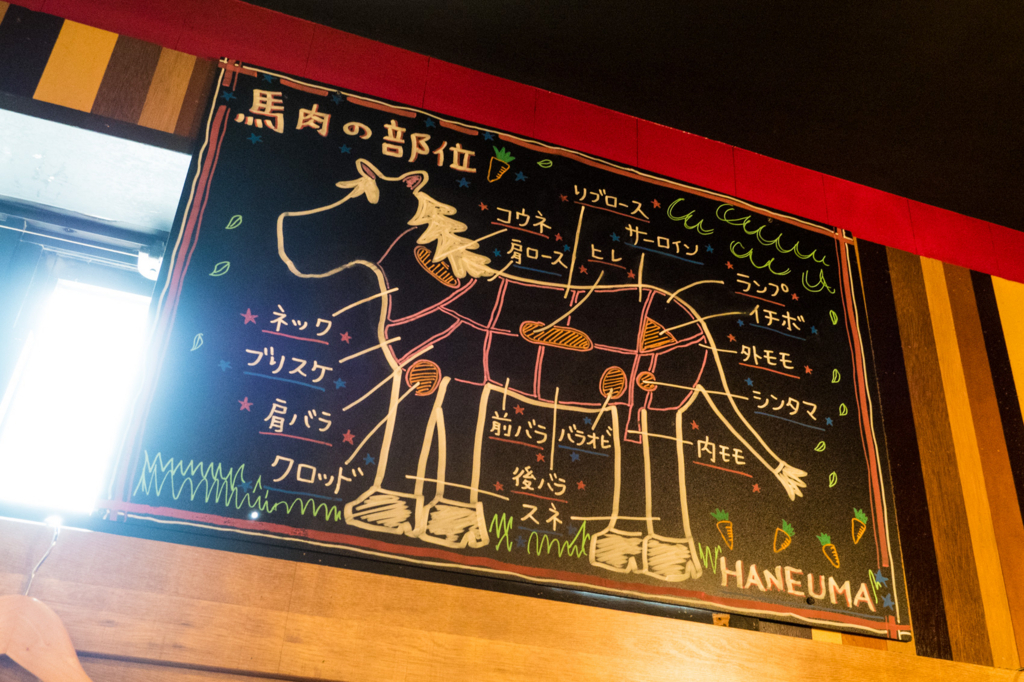 馬肉の部位
リブロース
コウネ
サーロイン
肩ロース
ヒレ
ランプ
イチボ
ネック
外モモ
ブリスケ
シンタマ
肩バラ
前バラ
バラオビ
内モモ
クロッド
後バラ
スネ
HANEUMA